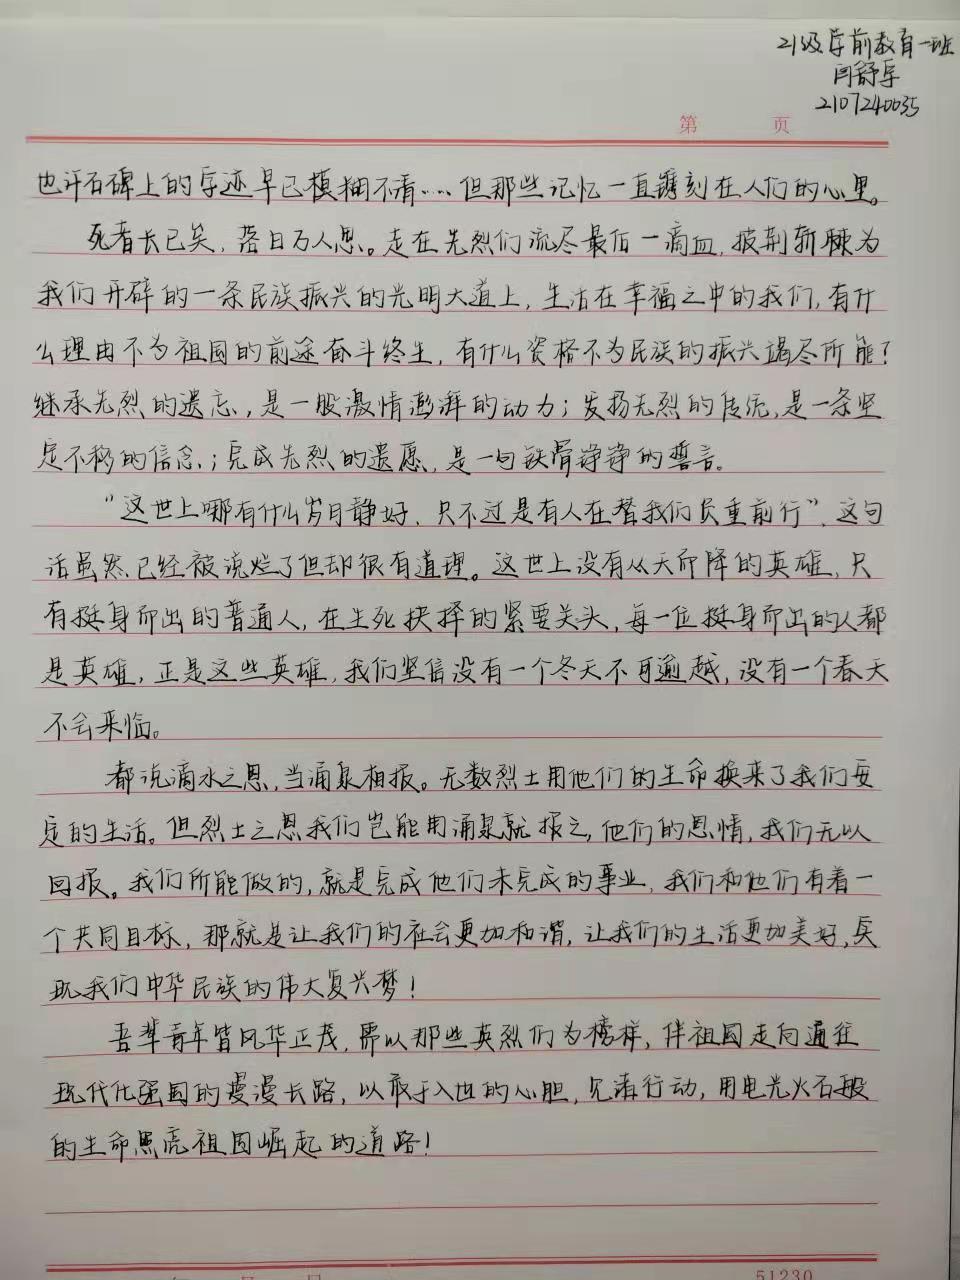 21级学前教育一班
闫舒孚
2107240035
第 页
也许石碑上的字迹早已模糊不清……但那些记忆一直镌刻在人们的心里。
死者长已矣,落日万人思。走在先烈们流尽最后一滴血,披荆斩棘为
我们开辟的一条民族振兴的光明大道上,生活在幸福之中的我们,有什
么理由不为祖国的前途奋斗终生,有什么资格不为民族的振兴竭尽所能?
继承先烈的遗志,是一股激情澎湃的动力;发扬先烈的传统,是一条坚
定不移的信念;完成先烈的遗愿,是一句铁骨铮铮的誓言。
“这世上哪有什么岁月静好,只不过是有人在替我们负重前行”,这句
话虽然已经被说烂了但却很有道理。这世上没有从天而降的英雄,只
有挺身而出的普通人,在生死抉择的紧要关头,每一位挺身而出的人都
是英雄,正是这些英雄,我们坚信没有一个冬天不可逾越,没有一个春天
不会来临。
都说滴水之恩,当涌泉相报。无数烈士用他们的生命换来了我们安
定的生活。但烈士之恩我们岂能用涌泉就报之,他们的恩情,我们无以
回报。我们所能做的,就是完成他们未完成的事业,我们和他们有着一
个共同目标,那就是让我们的社会更加和谐,让我们的生活更加美好,实
现我们中华民族的伟大复兴梦!
吾辈青年皆风华正茂,需以那些英烈们为榜样,伴祖国走向通往
现代化强国的漫漫长路,以敢于入世的心胆,凭清行动,用电光火石般
的生命照亮祖国崛起的道路!
51230